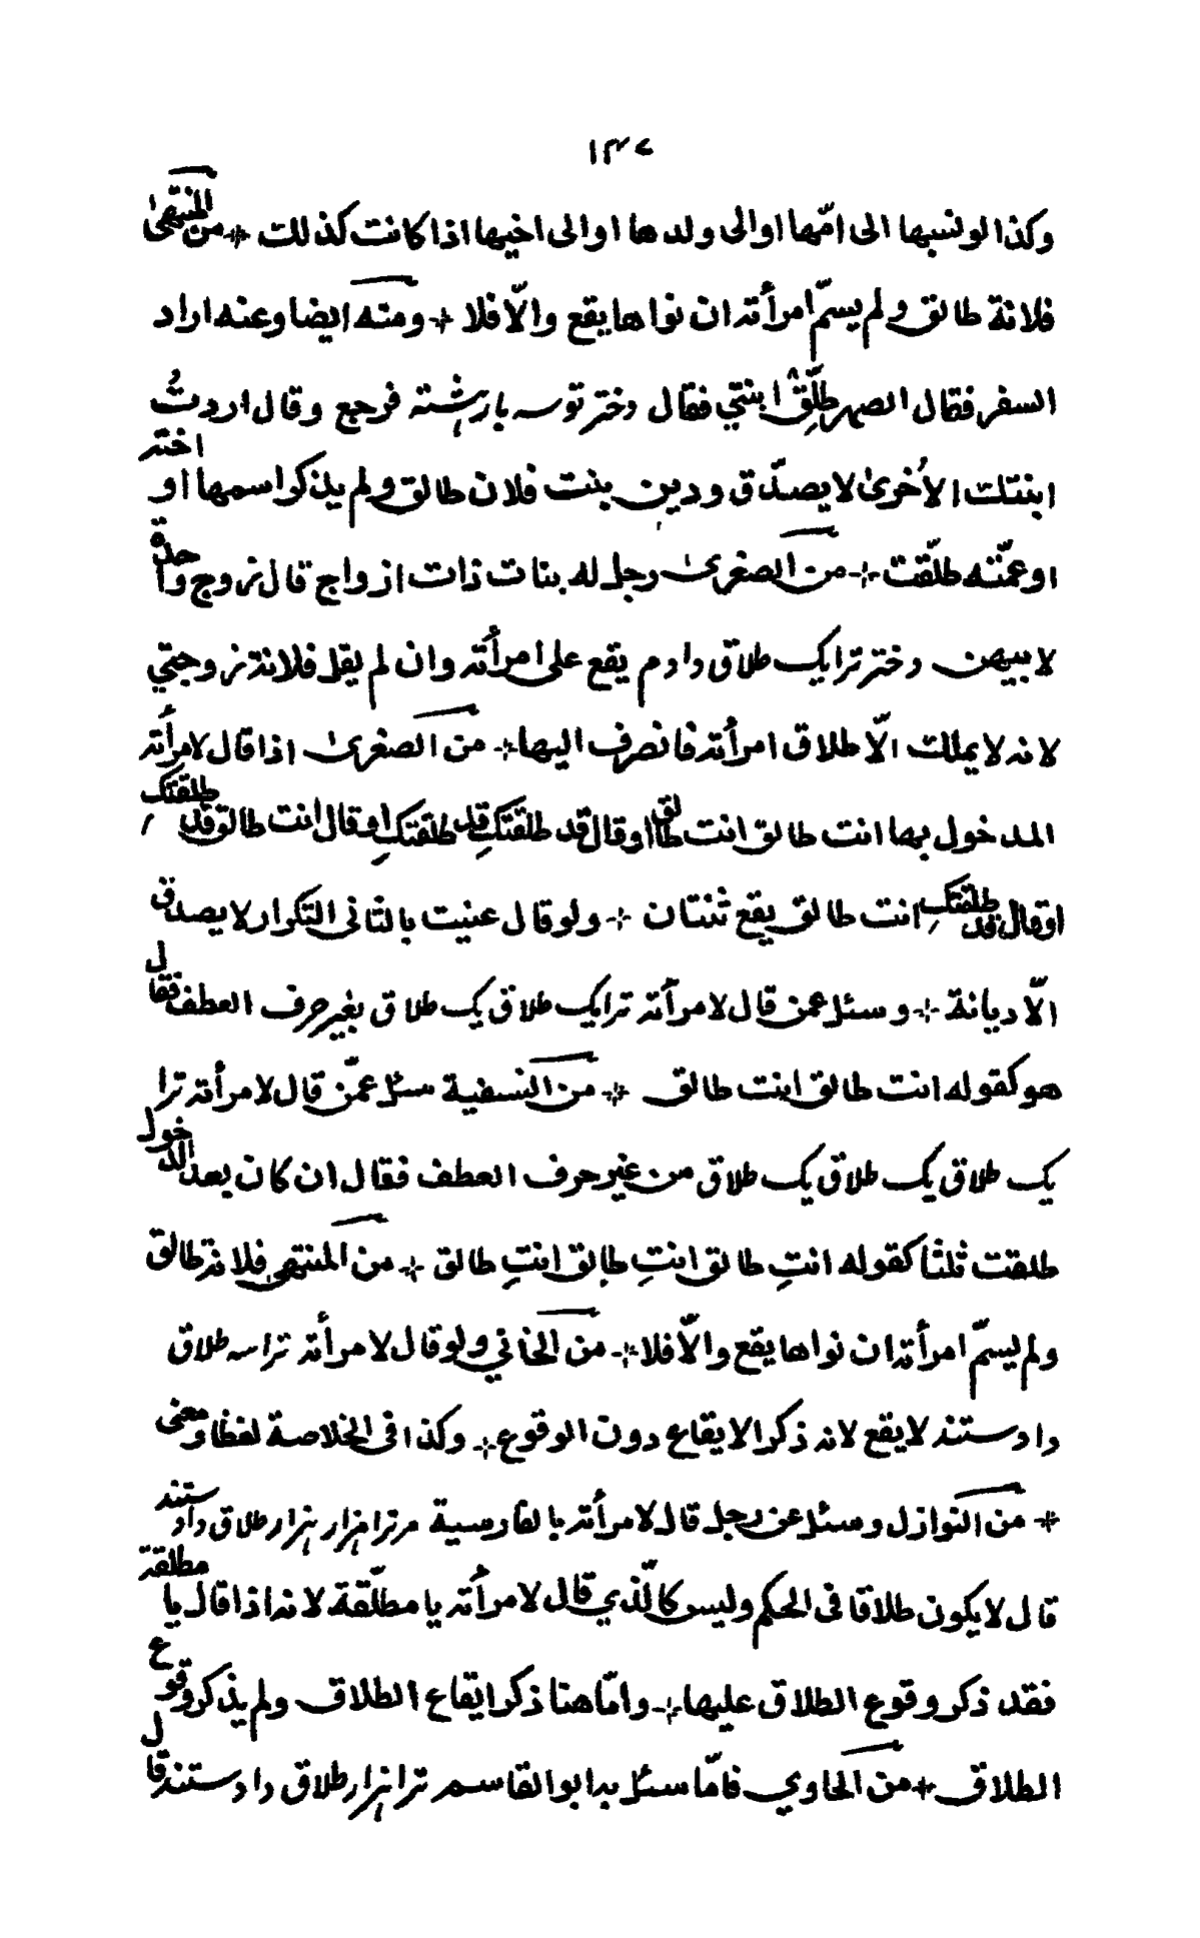 ١٣٧
وكذا لو نسبها الى امّها او الى ولدها او الى اخيها اذا كانت كذلك ⁜ من المنتهى
فلانة طالق ولم يسمّ امرأته ان نواها يقع والّا فلا ⁜ ومنه ايضا وعنه اراد
السفر فقال الصهر طلِّق ابنتي فقال دختر توسه بازشته فرجع وقال اردتُ
ابنتك الاُخرىٰ لا يصدّق ودين بنت فلان طالق ولم يذكر اسمها او اخته
او عمّته طلّقت ⁜ من الصغرىٰ رجل له بنات ذات ازواج قال زوج واحدة
لابيهن دختر ترا يك طلاق دادم يقع على امرأته وان لم يقل فلانة زوجتي
لانه لا يملك الّا طلاق امرأته فانصرف اليها ⁜ من الصغرىٰ اذا قال لامرأته
المدخول بها انت طالق انت طالق او قال قد طلقتكِ قد طلقتكِ او قال انت طالق قد طلقتكِ
او قال قد طلقتكِ انت طالق يقع ثنتان ⁜ ولو قال عنيت بالثاني التكرار لا يصدق
الّا ديانة ⁜ وسئل عمن قال لامرأته ترا يك طلاق يك طلاق بغير حرف العطف فقال
هو كقوله انت طالق انت طالق ⁜ من النسفية سئل عمّن قال لامرأته ترا
يك طلاق يك طلاق يك طلاق من غير حرف العطف فقال ان كان بعد الدخول
طلقت ثلثا كقوله انتِ طالق انتِ طالق انتِ طالق ⁜ من المنتهى فلانة طالق
ولم يسمّ امرأته ان نواها يقع والّا فلا ⁜ من الخاني ولو قال لامرأته ترا سه طلاق
دادستند لا يقع لانه ذكر الايقاع دون الوقوع ⁜ وكذا في الخلاصة لفظا ومعنى
⁜ من النوازل وسئل عن رجل قال لامرأته بالفارسية مر ترا هزار هزار طلاق دادستند
قال لا يكون طلاقا في الحكم وليس كالّذي قال لامرأته يا مطلّقة لانه اذا قال يا مطلقة
فقد ذكر وقوع الطلاق عليها ⁜ وامّا هنا ذكر ايقاع الطلاق ولم يذكر وقوع
الطلاق ⁜ من الحاوي فامّا سئل به ابو القاسم ترا هزار طلاق دادستند قال